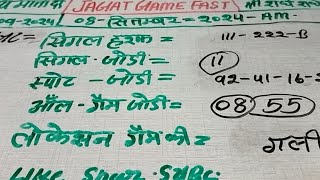 JAGAT GAME FAST
09-2024 08-सितम्बर=2024-AM-
सिंगल हरफ= 111-222-B
सिंगल-जोडी= 11
स्पोट-जोडी= 92-41-16-
ऑल-गैम जोडी= 08 55
लोकेसन गैम की= गली
LIKE Share SUBC